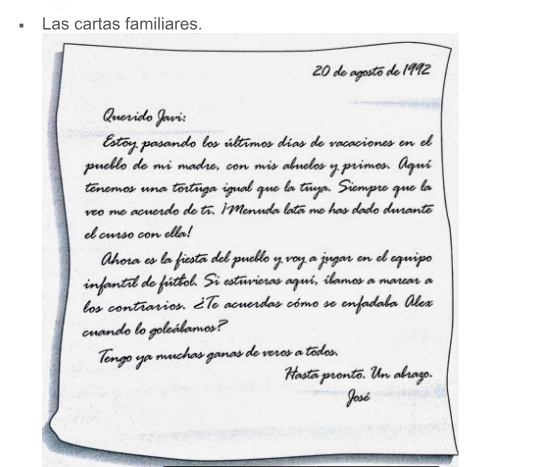 ▪ Las cartas familiares.
20 de agosto de 1992
Querido Javi:
Estoy pasando los últimos días de vacaciones en el
pueblo de mi madre, con mis abuelos y primos. Aquí
tenemos una tortuga igual que la tuya. Siempre que la
veo me acuerdo de ti. ¡Menuda lata me has dado durante
el curso con ella!
Ahora es la fiesta del pueblo y voy a jugar en el equipo
infantil de fútbol. Si estuvieras aquí, íbamos a marear a
los contrarios. ¿Te acuerdas cómo se enfadaba Alex
cuando lo goleábamos?
Tengo ya muchas ganas de veros a todos.
Hasta pronto. Un abrazo.
José